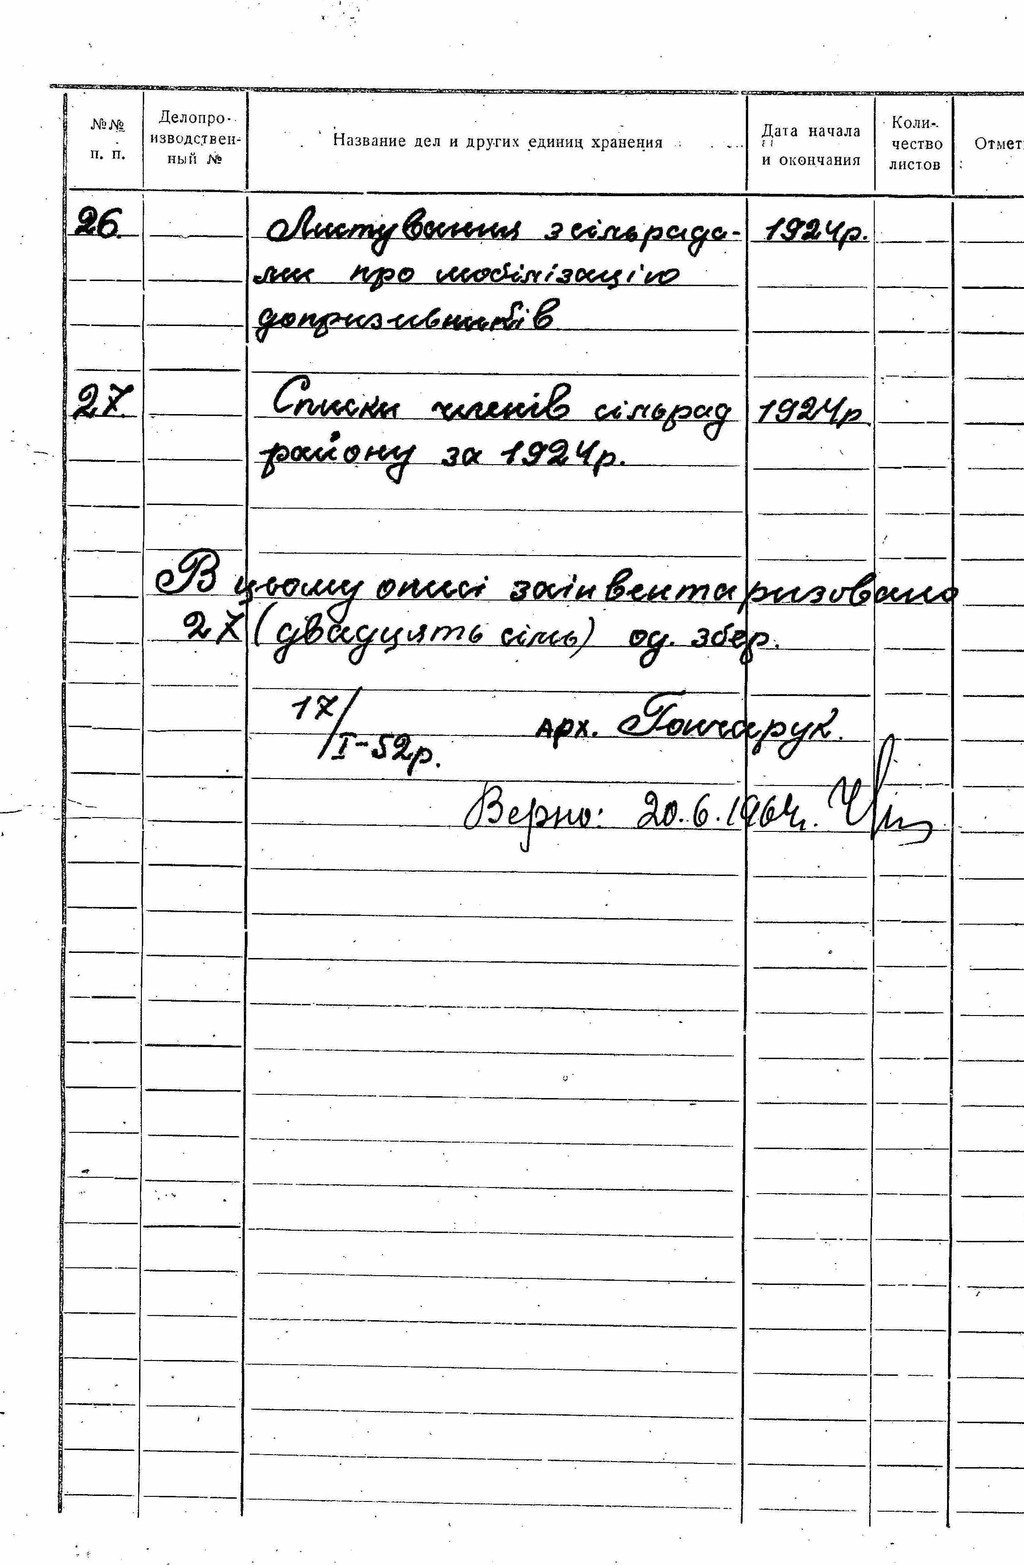 №№ п. п. Делопроизводственный № Название дел и других единиц хранения Дата начала и окончания Количество листов Отмет
26. Листування з сільрада- 1924р.
ми про мобілізацію
допризивників
27. Списки членів сільрад 1924р.
району за 1924р.
В цьому описі заінвентаризовано
27 (двадцять сім) од. збер.
17/I-52р. арх. Гончарук.
Верно: 20.6.1964г.